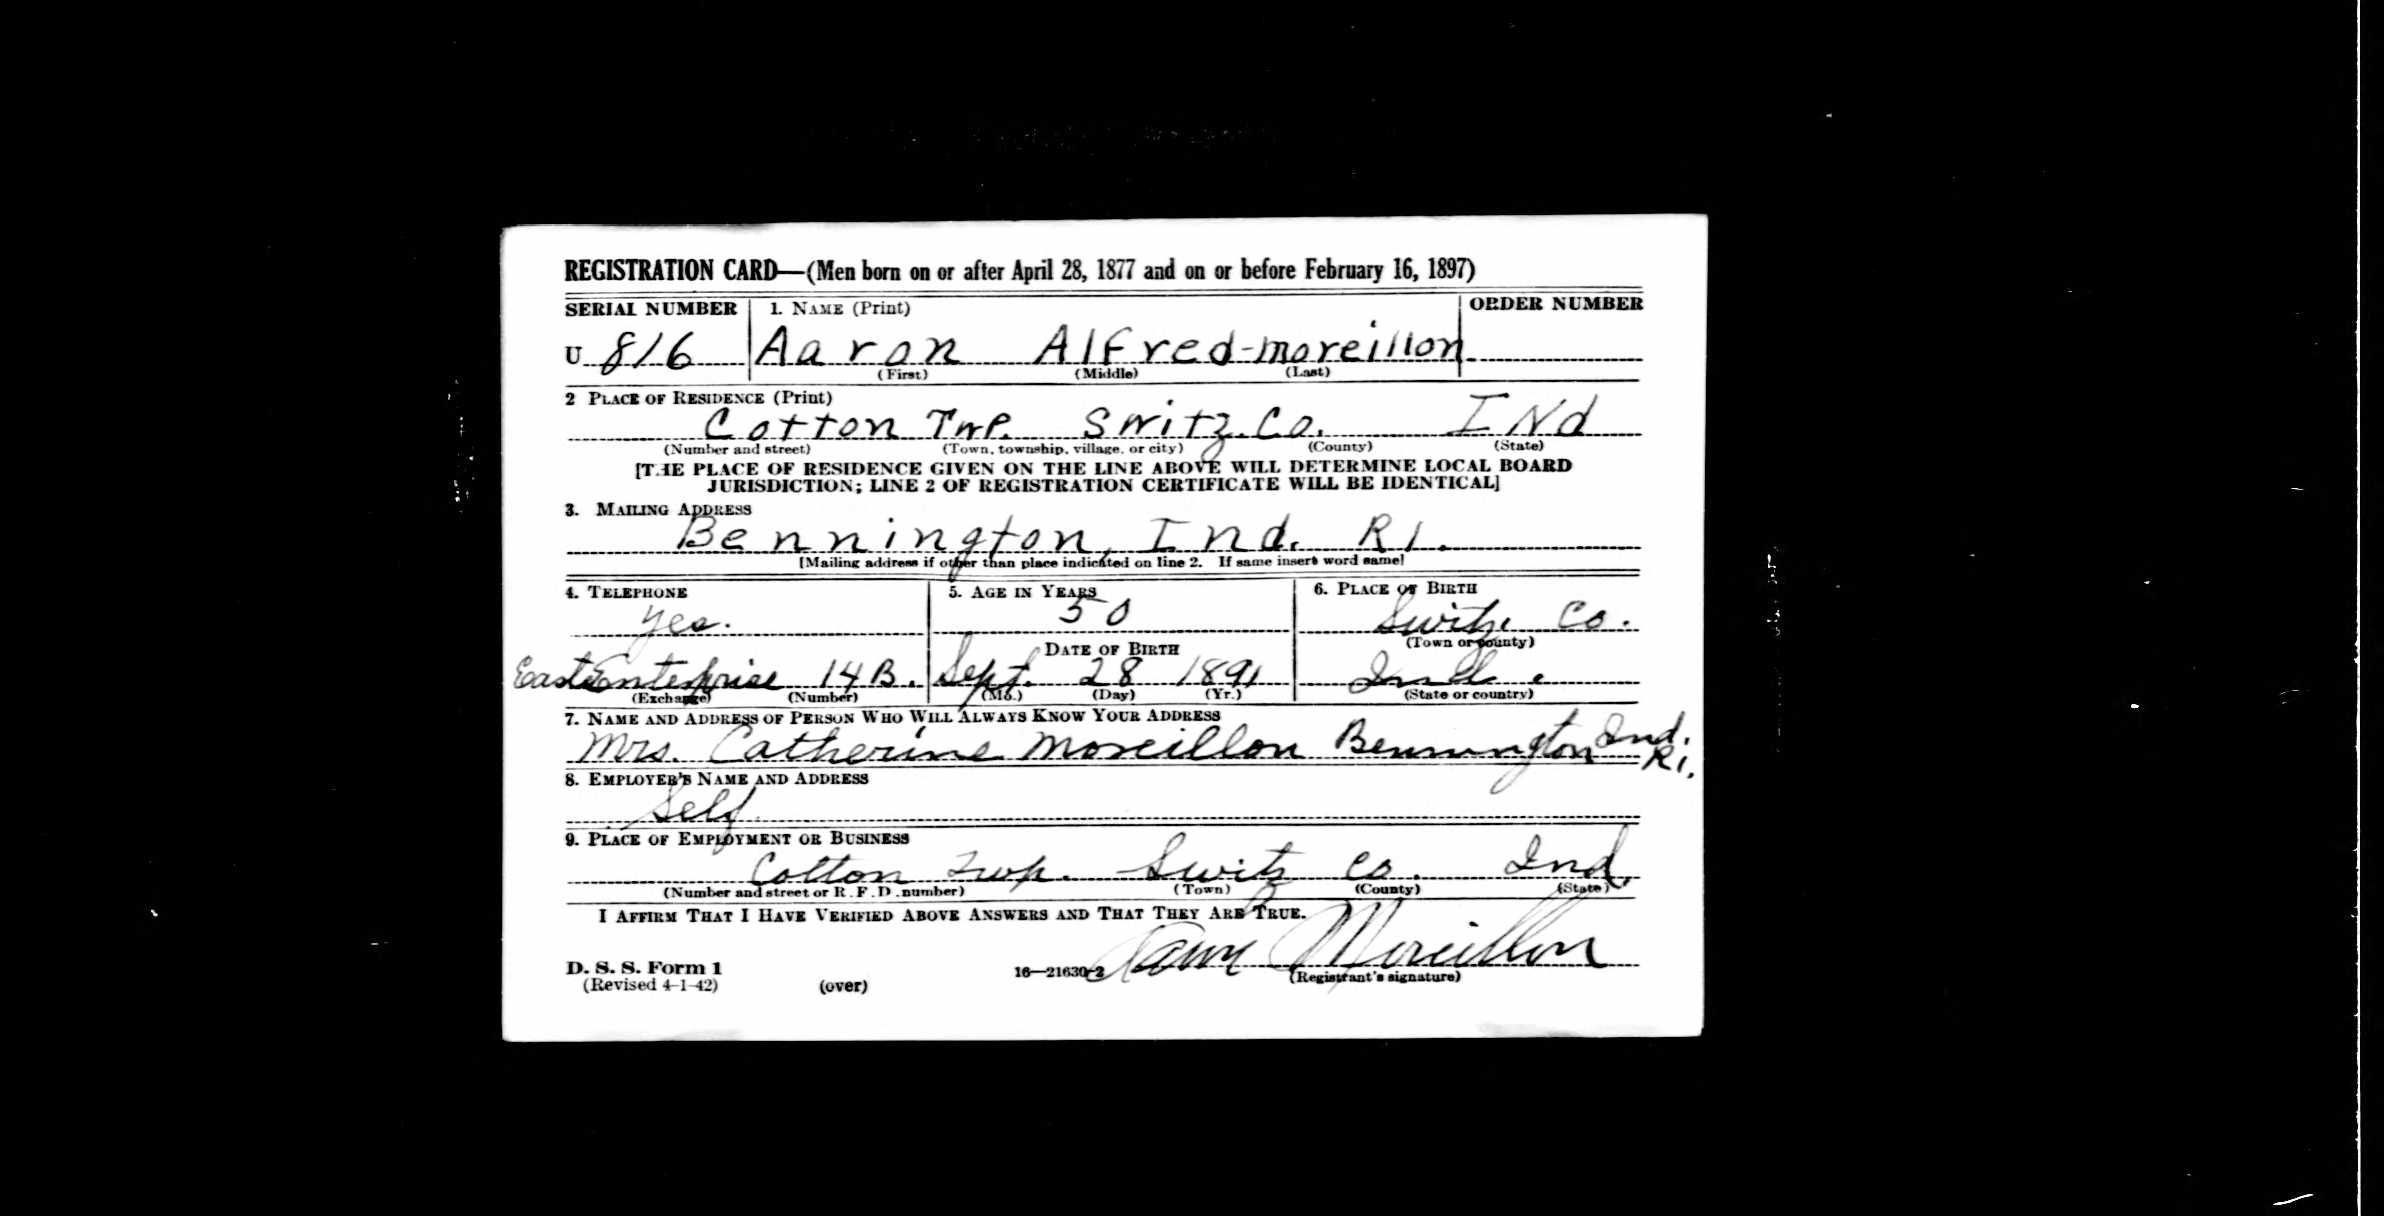 REGISTRATION CARD—(Men born on or after April 28, 1877 and on or before February 16, 1897)
SERIAL NUMBER 1. NAME (Print) ORDER NUMBER
U 816 Aaron Alfred-moreillon
(First) (Middle) (Last)
2 PLACE OF RESIDENCE (Print)
Cotton Twp. Switz. Co. INd
(Number and street) (Town, township, village, or city) (County) (State)
[THE PLACE OF RESIDENCE GIVEN ON THE LINE ABOVE WILL DETERMINE LOCAL BOARD
JURISDICTION; LINE 2 OF REGISTRATION CERTIFICATE WILL BE IDENTICAL]
3. MAILING ADDRESS
Bennington, Ind. R1.
[Mailing address if other than place indicated on line 2. If same insert word same]
4. TELEPHONE 5. AGE IN YEARS 6. PLACE OF BIRTH
yes. 50 Switz. Co.
DATE OF BIRTH (Town or county)
East Enterprise 14B. Sept. 28 1891 Ind.
(Exchange) (Number) (Mo.) (Day) (Yr.) (State or country)
7. NAME AND ADDRESS OF PERSON WHO WILL ALWAYS KNOW YOUR ADDRESS
Mrs. Catherine Moreillon Bennington Ind. R1.
8. EMPLOYER'S NAME AND ADDRESS
Self
9. PLACE OF EMPLOYMENT OR BUSINESS
Cotton Twp. Switz Co. Ind.
(Number and street or R. F. D. number) (Town) (County) (State)
I AFFIRM THAT I HAVE VERIFIED ABOVE ANSWERS AND THAT THEY ARE TRUE.
Aaron Moreillon
D. S. S. Form 1 16—21630-2 (Registrant's signature)
(Revised 4-1-42) (over)